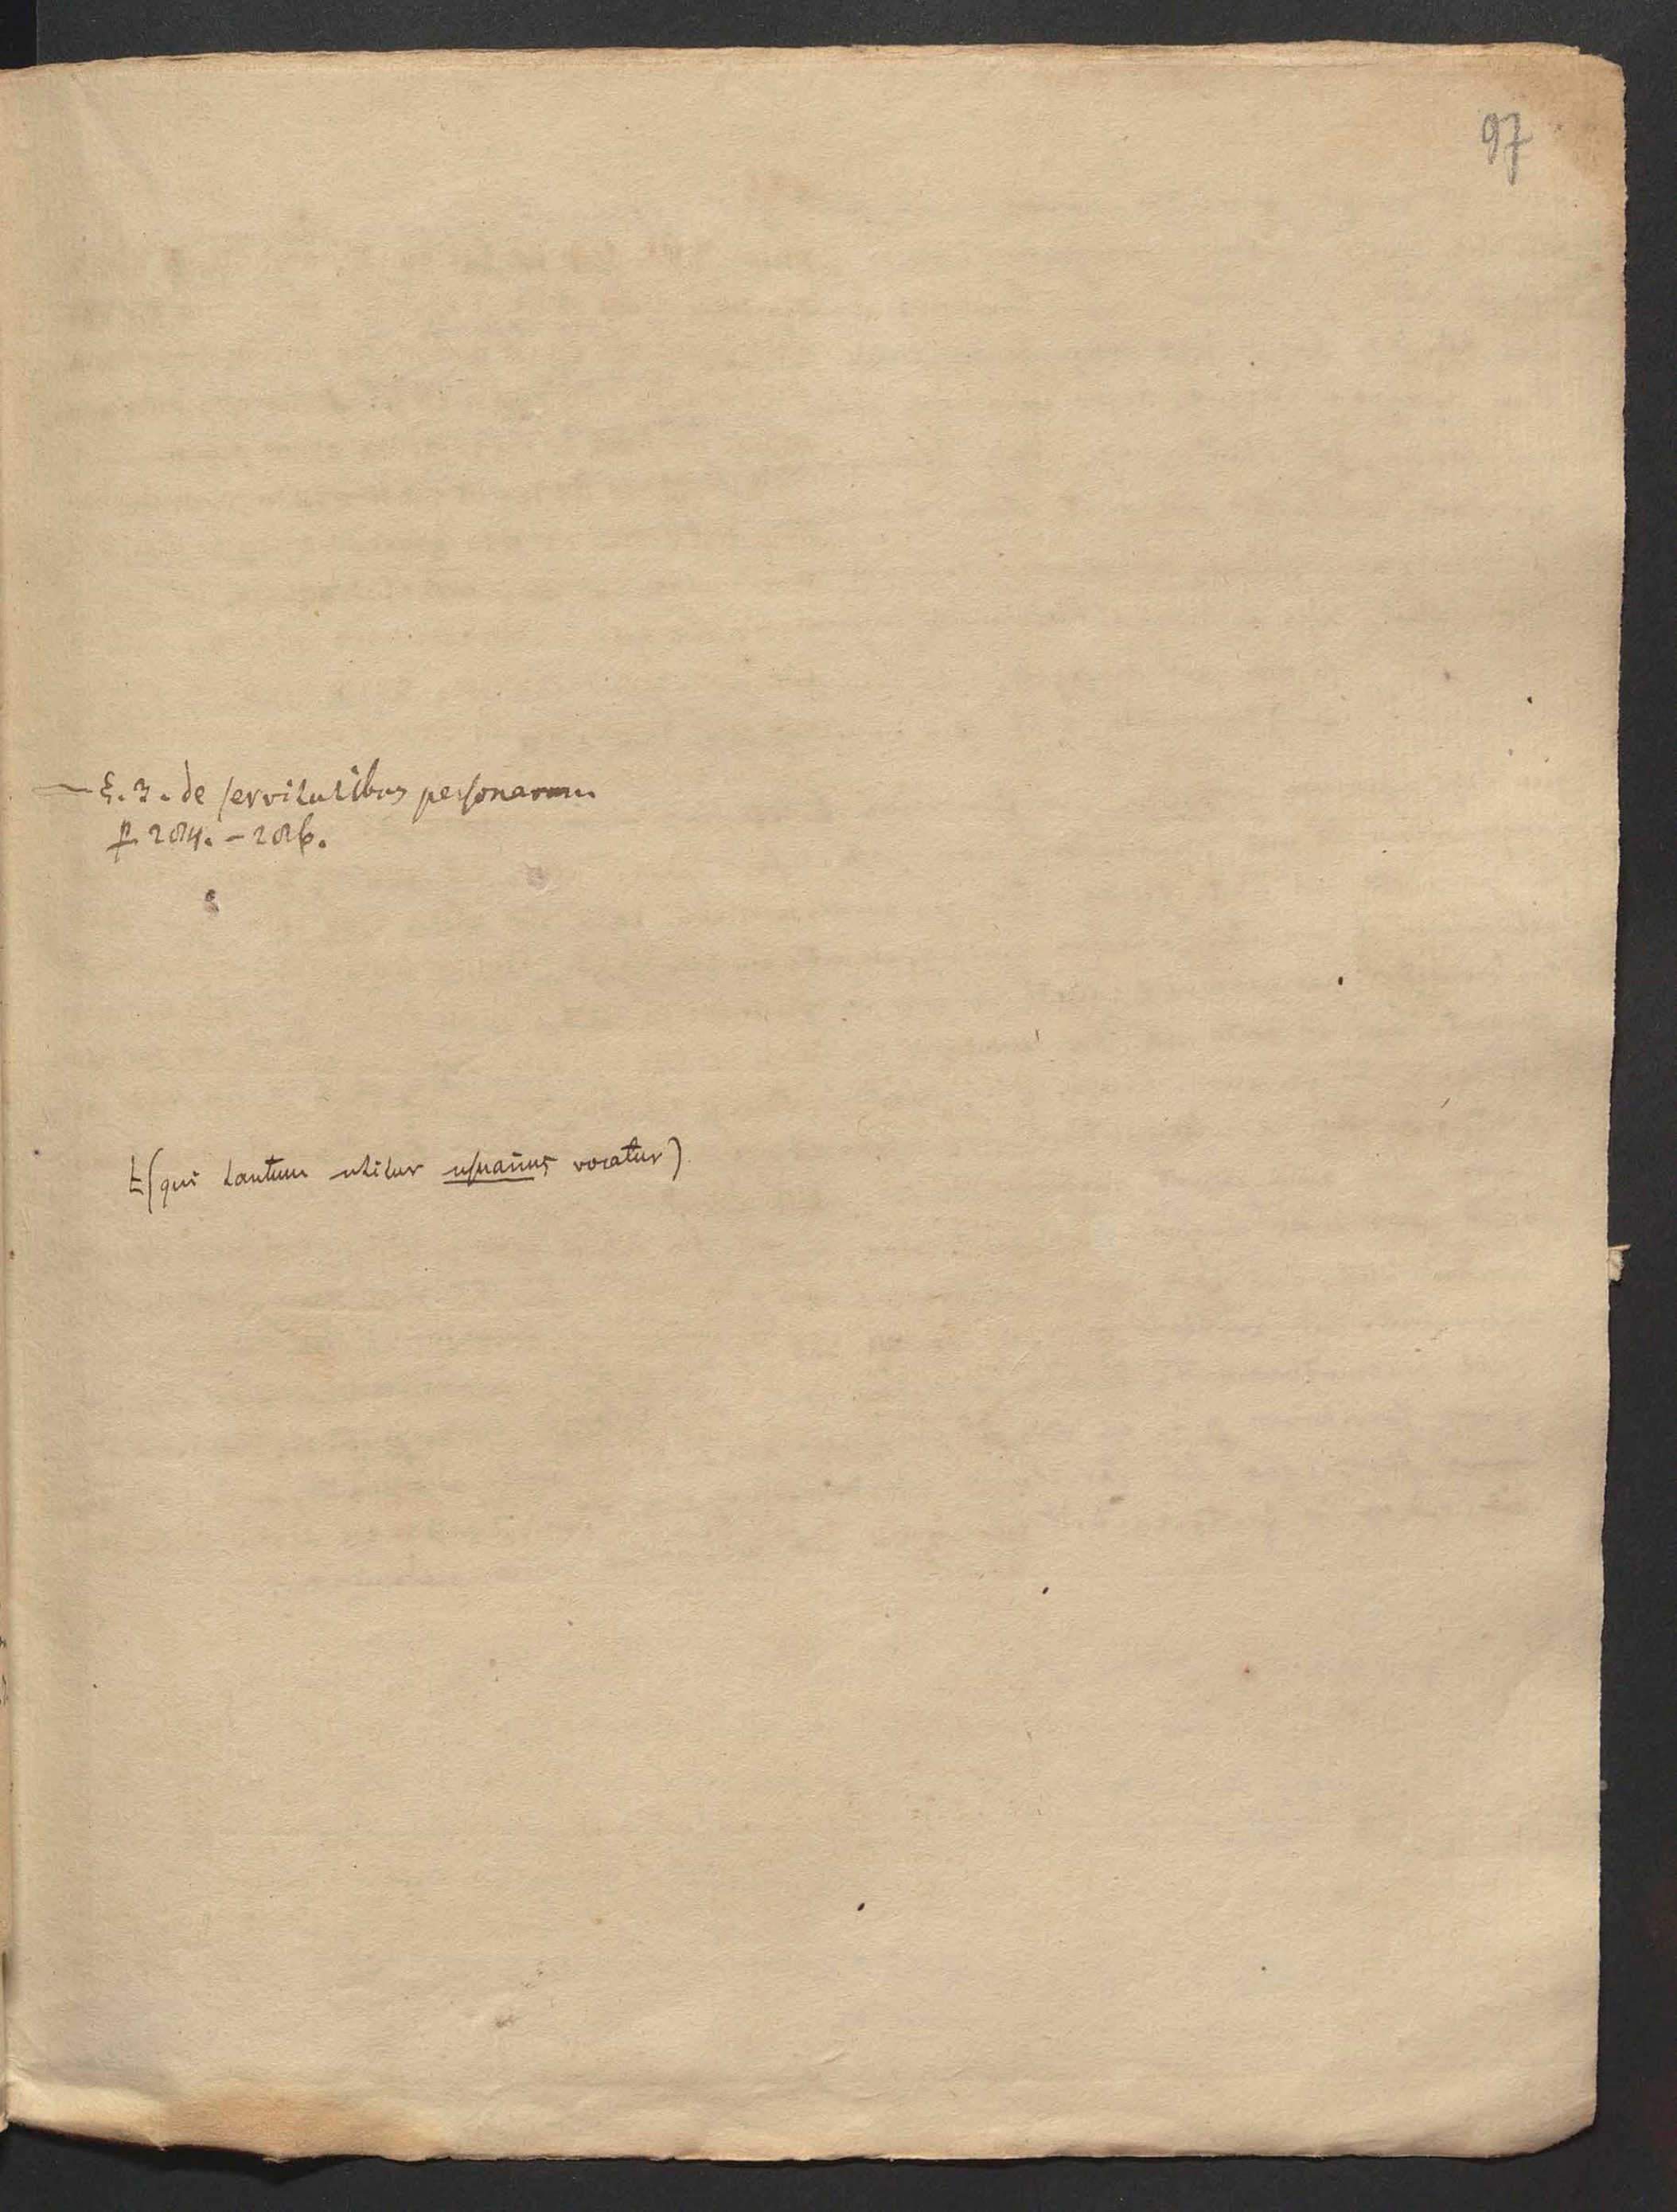 97
— §. 3. de servitutibus personarum
p. 284. – 286.
t (qui tantum utitur usuarius vocatur)